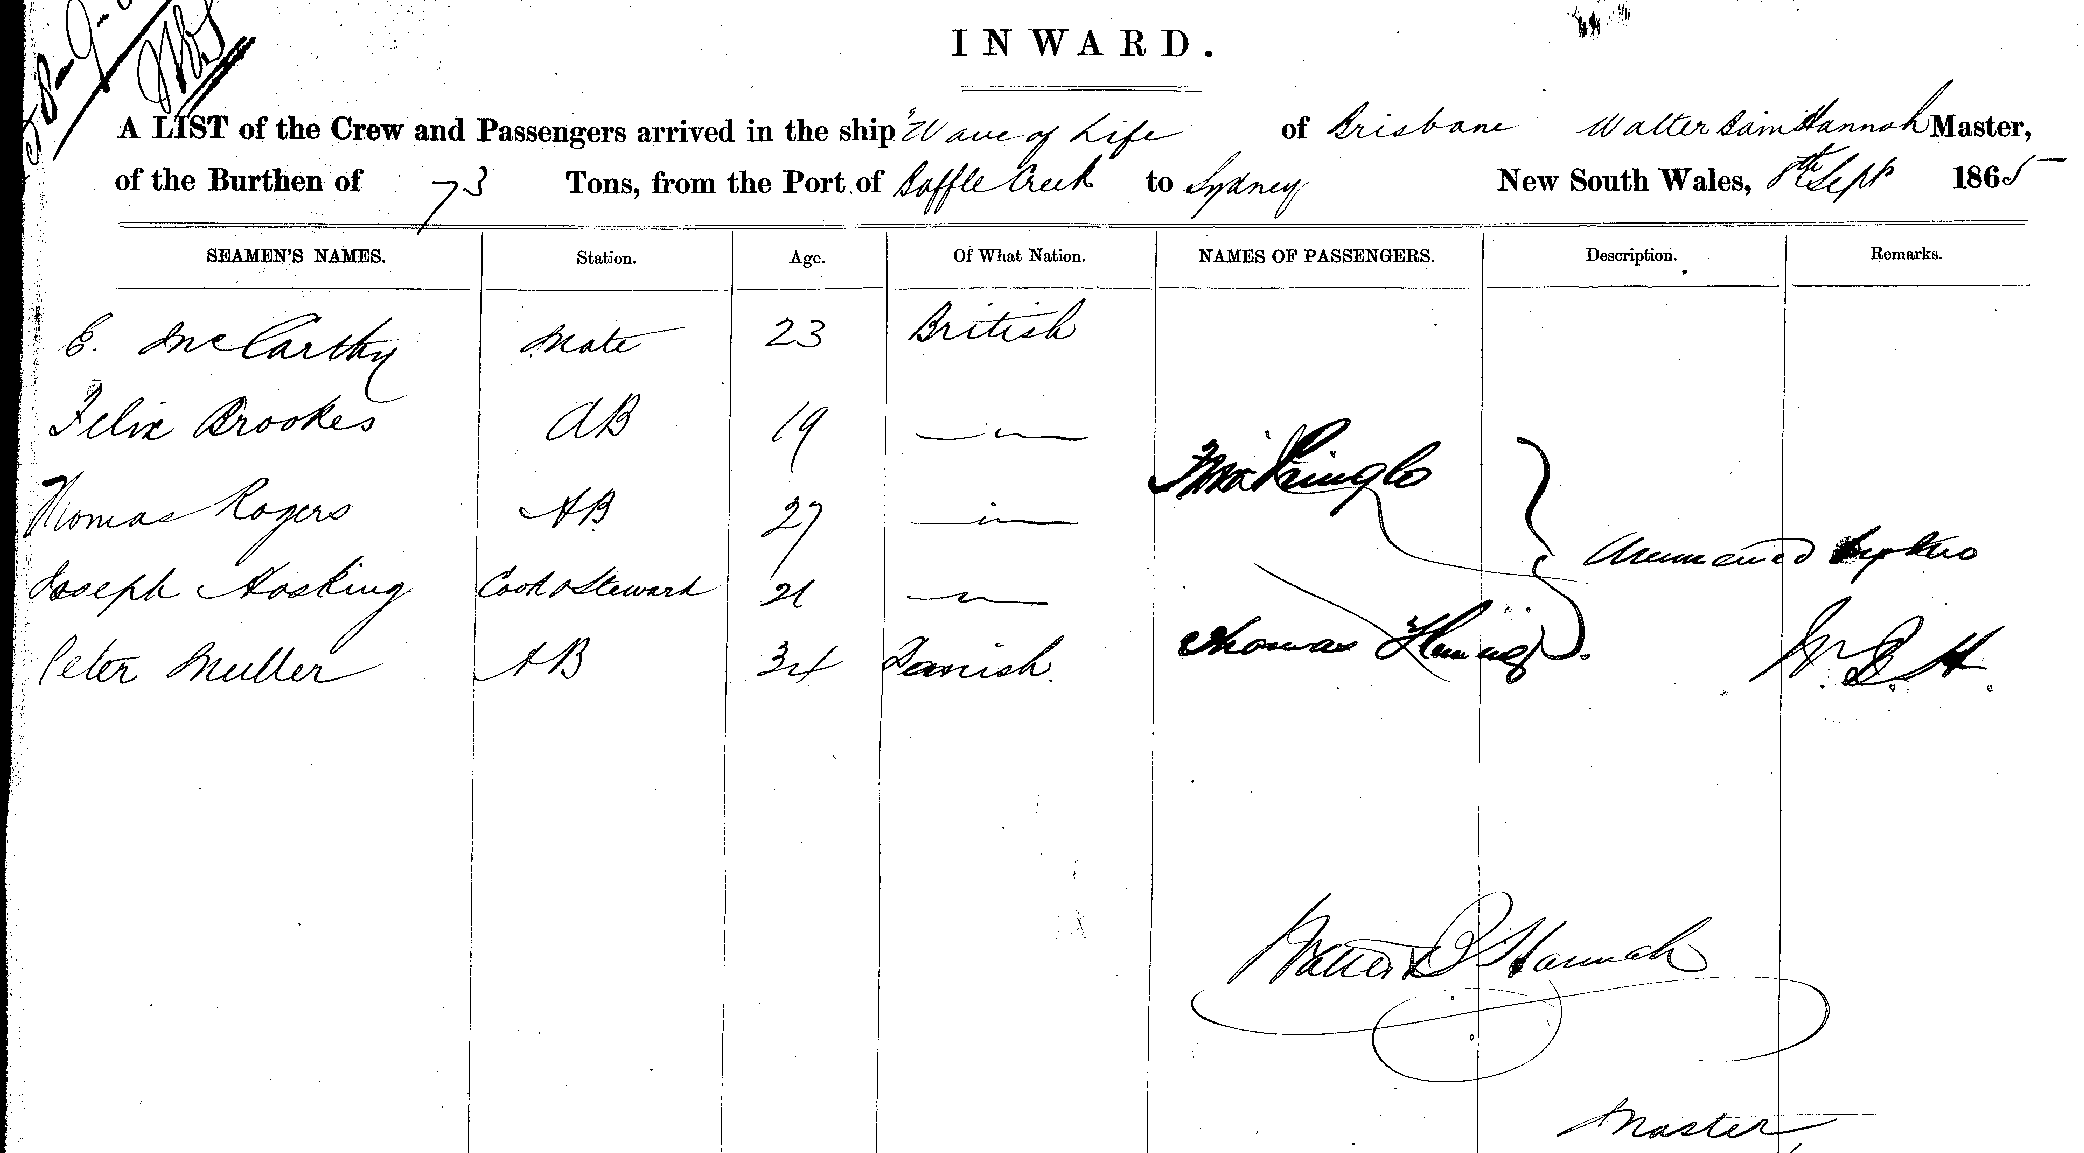 INWARD.
A LIST of the Crew and Passengers arrived in the ship "Wave of Life of Brisbane Walter Bain Hannah Master,
of the Burthen of 73 Tons, from the Port of Baffle Creek to Sydney New South Wales, 8th Sept 1865
SEAMEN'S NAMES. Station. Age. Of What Nation. NAMES OF PASSENGERS. Description. Remarks.
E. McCarthy Mate 23 British
Felix Brookes AB 19 — " —
Thomas Rogers AB 27 — " —
Joseph Hosking Cook & Steward 21 — " —
Peter Muller AB 34 Danish
Pringle
Thomas
W. B. H.
Walter B Hannah
Master,